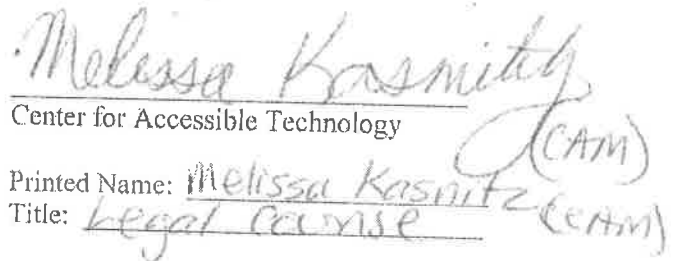 Melissa Kasnitz
Center for Accessible Technology
(CAM)
Printed Name: Melissa Kasnitz (CAM)
Title: Legal Counse